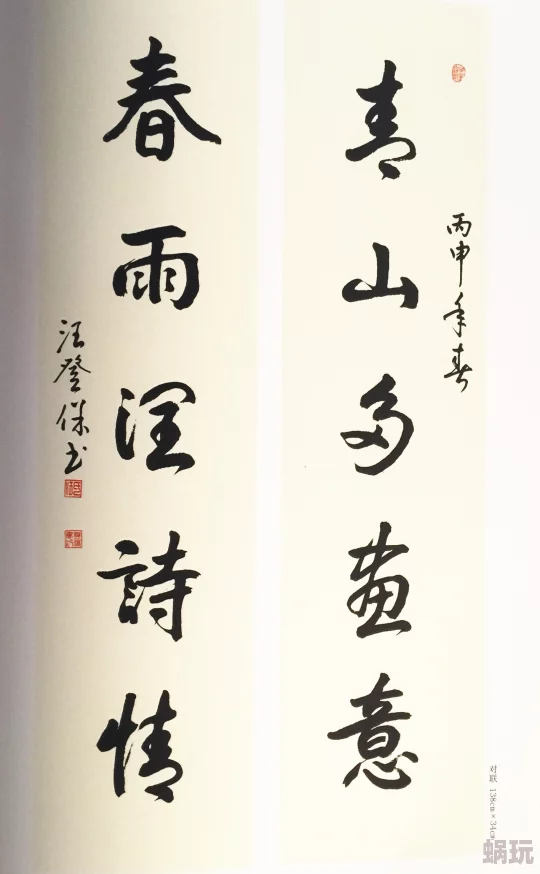 丙申年春
青山多画意
春雨润诗情
汪登保书
对联 138cm×34cm
蜗玩